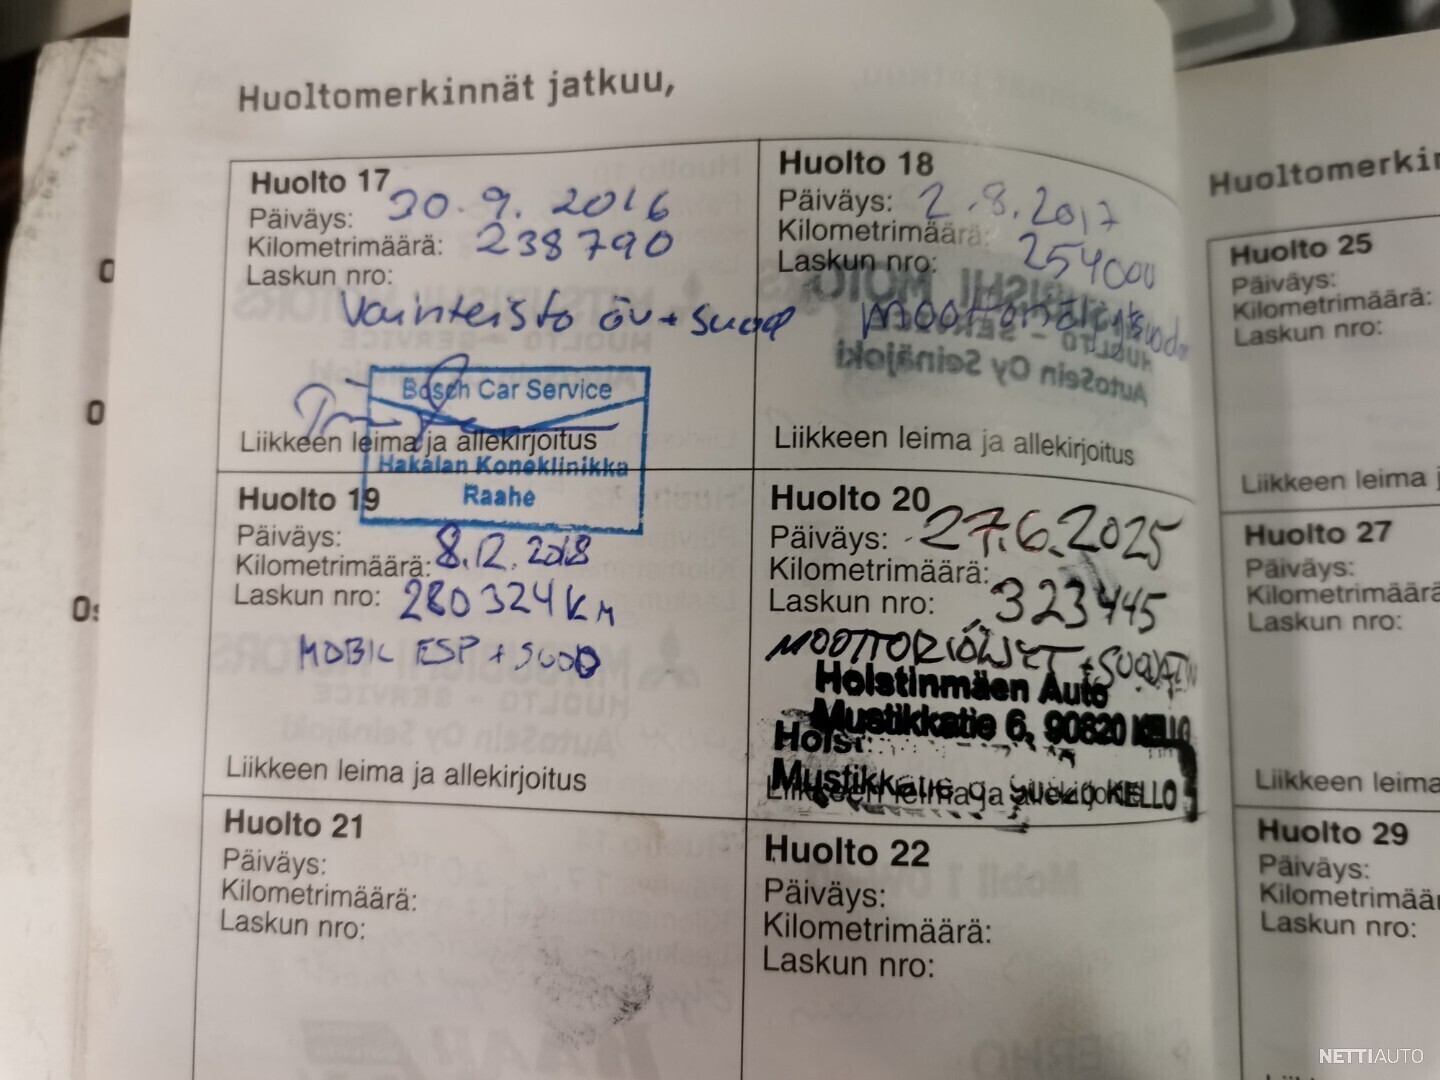 Huoltomerkinnät jatkuu,
Huolto 17
Päiväys: 30.9. 2016
Kilometrimäärä: 238790
Laskun nro:
Vainteisto öv + suod
Bosch Car Service
Liikkeen leima ja allekirjoitus
Hakalan Koneklinikka
Raahe
Huolto 18
Päiväys: 2.8.2017
Kilometrimäärä: 254000
Laskun nro:
MITSUBISHI MOTORS
HUOLTO - SERVICE
AutoSein Oy Seinäjoki
Liikkeen leima ja allekirjoitus
Huolto 19
Päiväys: 8.12.2018
Kilometrimäärä:
Laskun nro: 280324 KM
MOBIL ESP + SUOD
Liikkeen leima ja allekirjoitus
Huolto 20
Päiväys: 27.6.2025
Kilometrimäärä:
Laskun nro: 323445
MOOTTORIÖLJYT + SUODATIN
Holstinmäen Auto
Mustikkatie 6, 90820 KELLO
Hols
Mustikkatie KELLO
Liikkeen leima ja allekirjoitus
Huolto 21
Päiväys:
Kilometrimäärä:
Laskun nro:
Huolto 22
Päiväys:
Kilometrimäärä:
Laskun nro:
Huoltomerkin
Huolto 25
Päiväys:
Kilometrimäärä:
Laskun nro:
Liikkeen leima j
Huolto 27
Päiväys:
Kilometrimäärä
Laskun nro:
Liikkeen leima
Huolto 29
Päiväys:
Kilometrimäär
Laskun nro:
NETTIAUTO